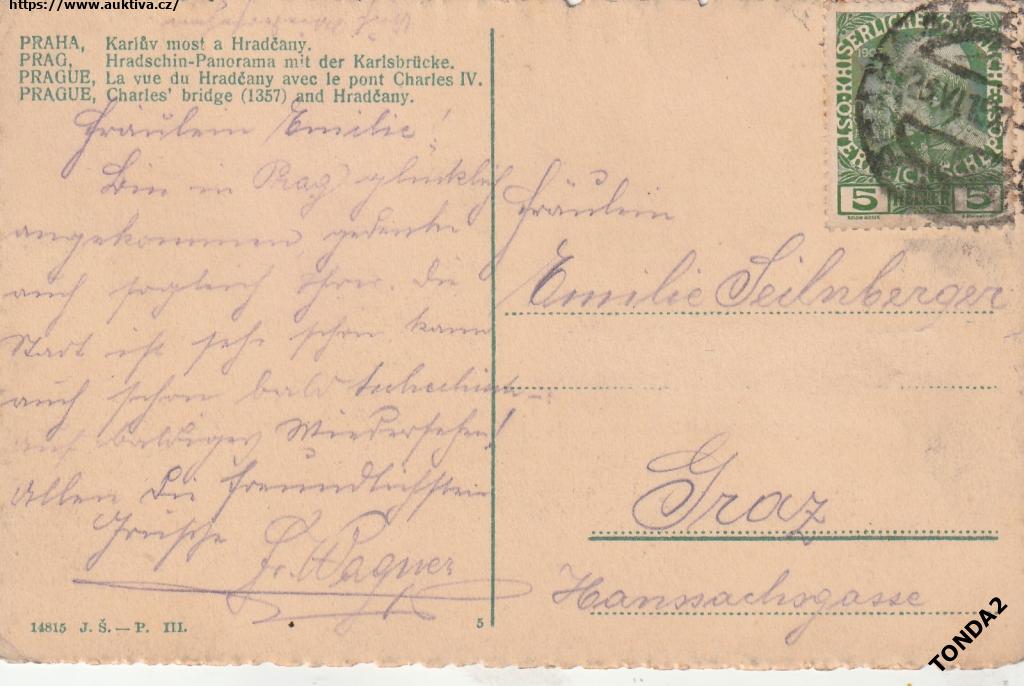 https://www.auktiva.cz/
PRAHA, Karlův most a Hradčany.
PRAG, Hradschin-Panorama mit der Karlsbrücke.
PRAGUE, La vue du Hradčany avec le pont Charles IV.
PRAGUE, Charles' bridge (1357) and Hradčany.
Fräulein Emilie!
Bin in Prag glücklich
angekommen, gedenke
auch sogleich Ihrer. Die
Stadt ist sehr schön kann
auch schon bald tschechisch
auf baldiges Wiedersehen!
Allen die freundlichsten
Grüsse Fr. Wagner
14815 J. Š. — P. III.
5
5 HELLER 5
Fräulein
Emilie Seilnberger
Graz
Hanssachsgasse
TONDA2